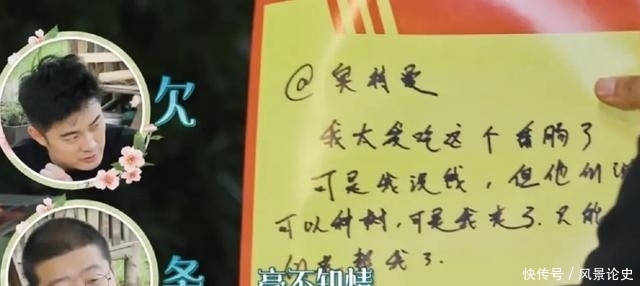 @奥特曼
我太爱吃这个香肠了
可是我没钱，但他们说
可以种树，可是我走了.只能
们来帮我了.
欠
条
毫不知情
快传号/风景论史